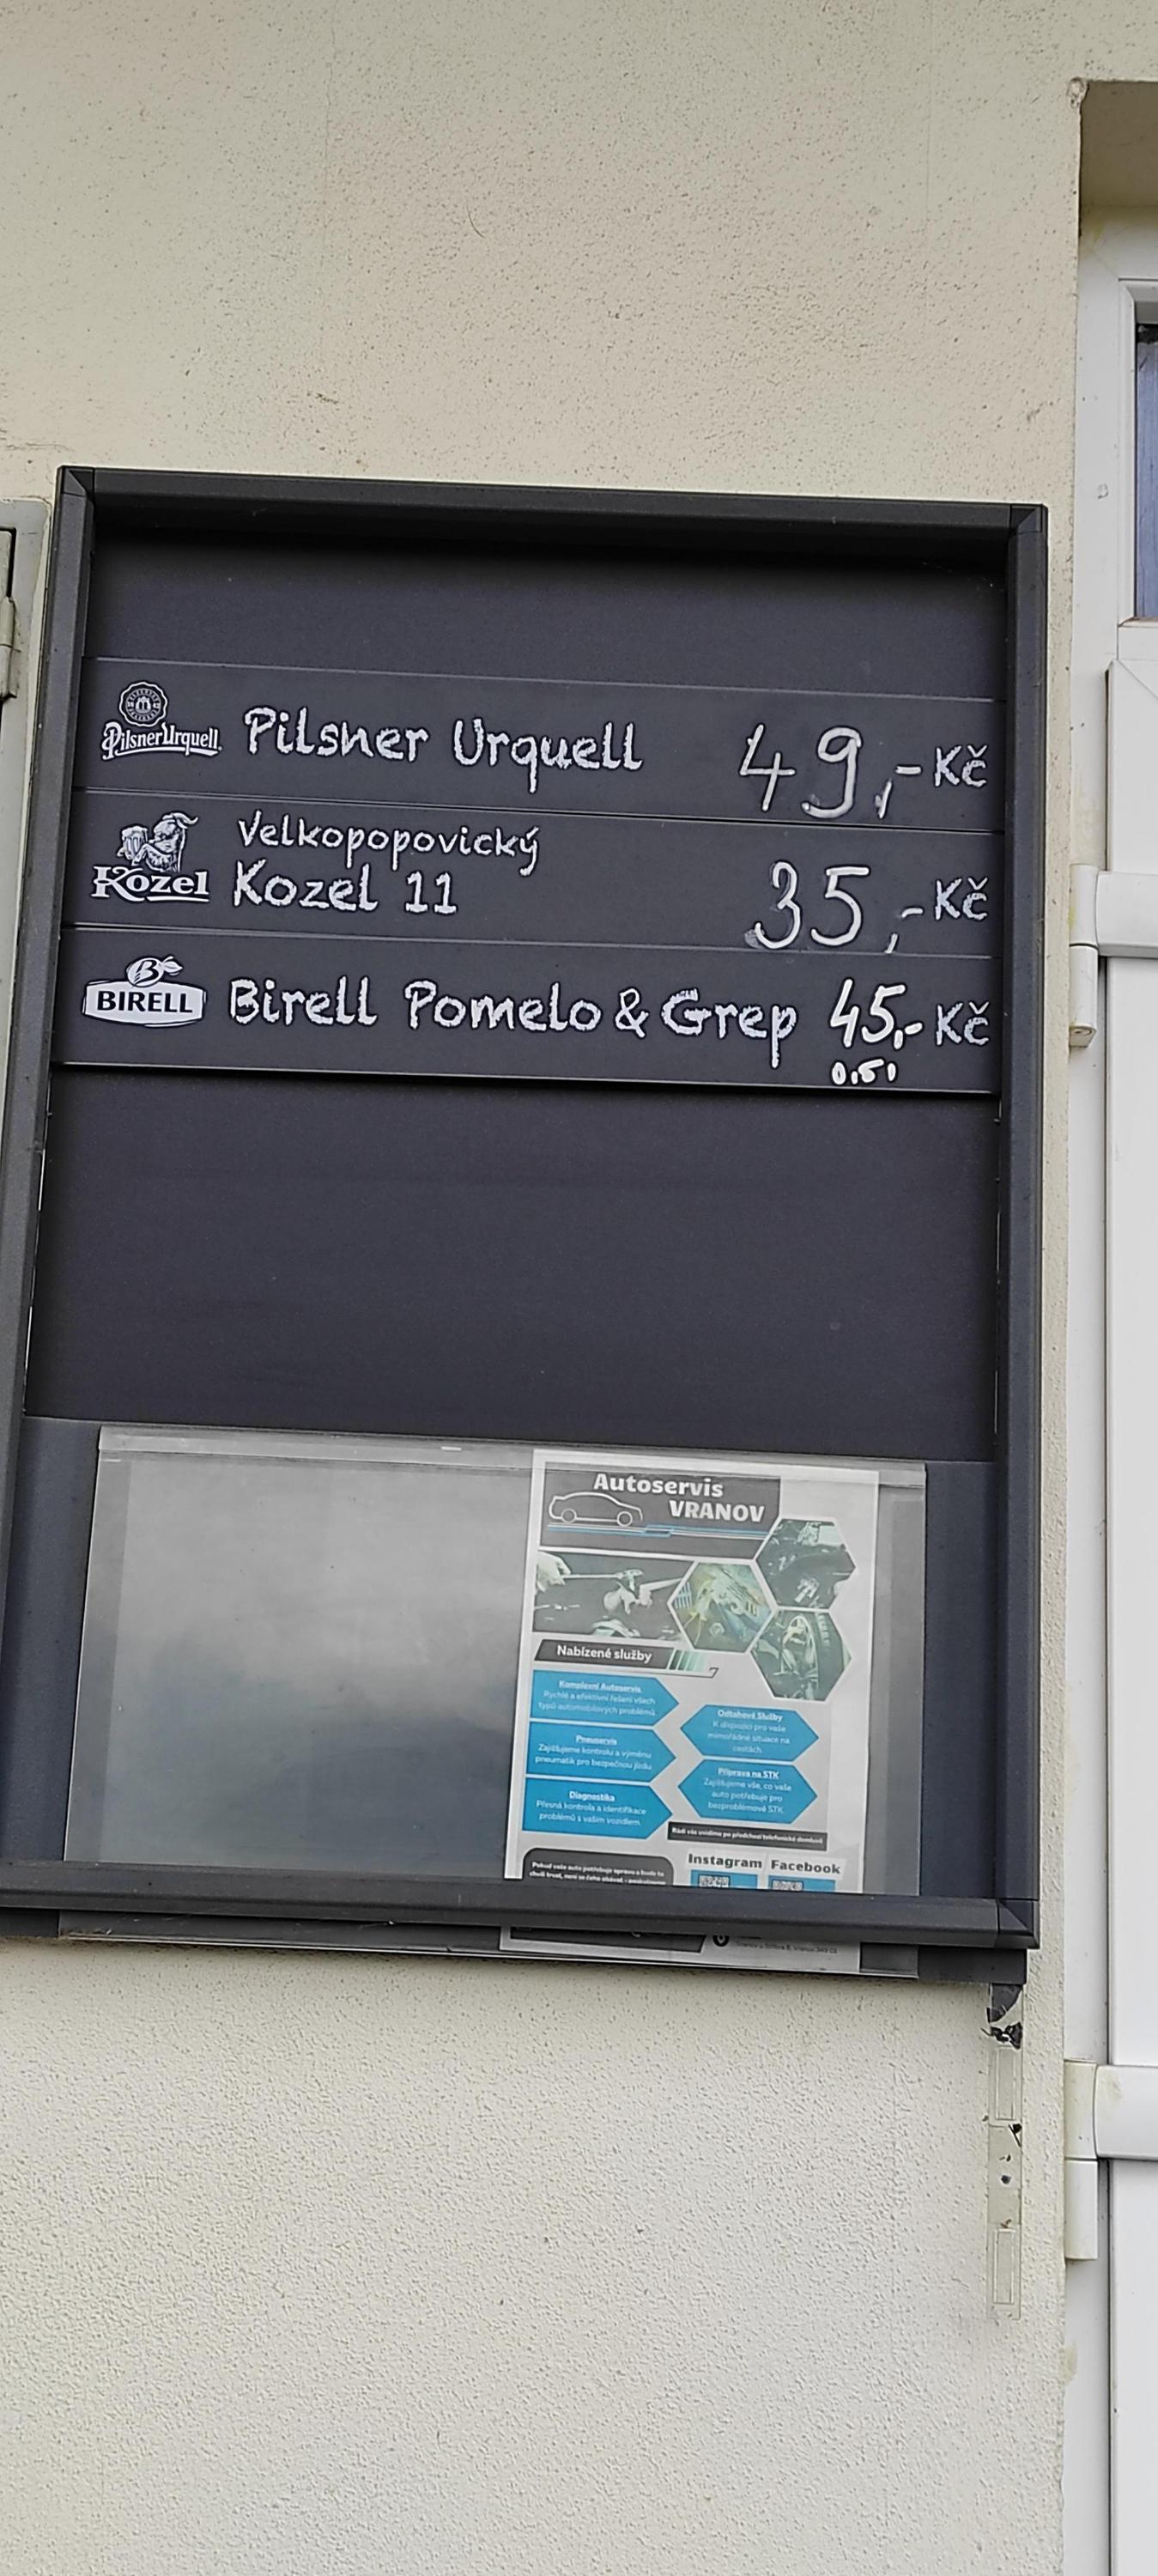 PilsnerUrquell Pilsner Urquell 49,- Kč
Velkopopovický
Kozel Kozel 11 35,- Kč
B
BIRELL Birell Pomelo & Grep 45,- Kč
0,5l
Autoservis
VRANOV
Nabízené služby
Komplexní Autoservis
Rychlé a efektivní řešení všech
typů automobilových problémů.
Pneuservis
Zajišťujeme kontrolu a výměnu
pneumatik pro bezpečnou jízdu.
Diagnostika
Přesná kontrola a identifikace
problémů s vaším vozidlem.
Odtahové Služby
K dispozici pro vaše
mimořádné situace na
cestách.
Příprava na STK
Zajišťujeme vše, co vaše
auto potřebuje pro
bezproblémové STK.
Rádi vás uvidíme po předchozí telefonické domluvě
Pokud vaše auto potřebuje opravu a bude to
Instagram Facebook